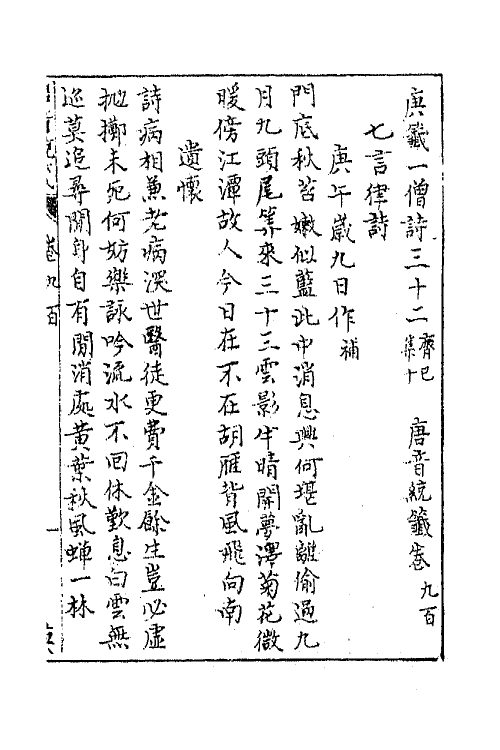 庚籤一僧詩三十二 齊己集十 唐音統籤卷九百
七言律詩
庚午歲九日作 補
門底秋苔嫩似藍此中消息興何堪亂離偷過九
月九頭尾算來三十三雲影半晴開夢澤菊花微
暖傍江潭故人今日在不在胡雁背風飛向南
遣懷
詩病相兼老病深世醫徒更費千金餘生豈必虛
拋擲未死何妨樂詠吟流水不回休歎息白雲無
迹莫追尋閒身自有閒消處黃葉秋風蟬一林
卷九百 一